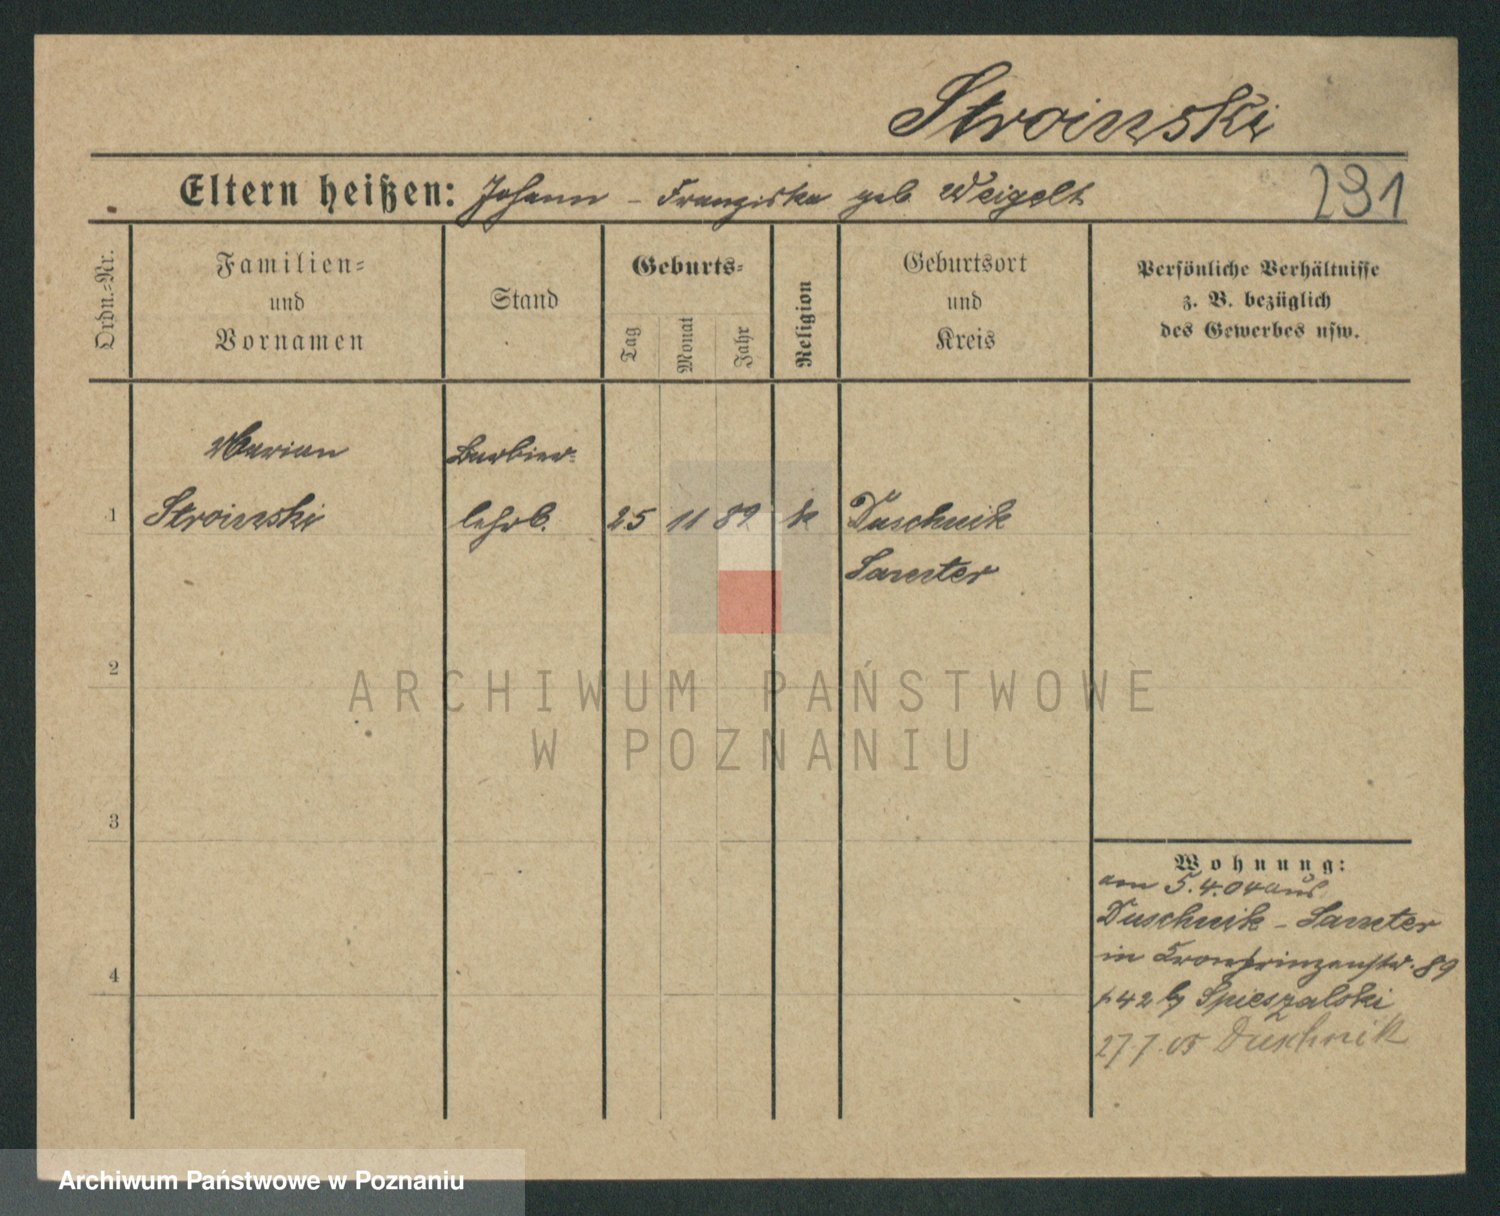 Stroinski
Eltern heißen: Johann - Franziska geb. Weigelt
291
Ordn.-Nr.
Familien-
und
Vornamen
Stand
Geburts-
Tag
Monat
Jahr
Religion
Geburtsort
und
Kreis
Persönliche Verhältnisse
z. B. bezüglich
des Gewerbes usw.
Marian
Barbier-
1 Stroinski lehrl. 25 11 89 k Duschnik
Samter
2
ARCHIWUM PAŃSTWOWE
W POZNANIU
3
Wohnung:
am 5.4.04 aus
Duschnik - Samter
in Kronprinzenstr. 89
Spieszalski
4
27 7. 05 Duschnik
Archiwum Państwowe w Poznaniu